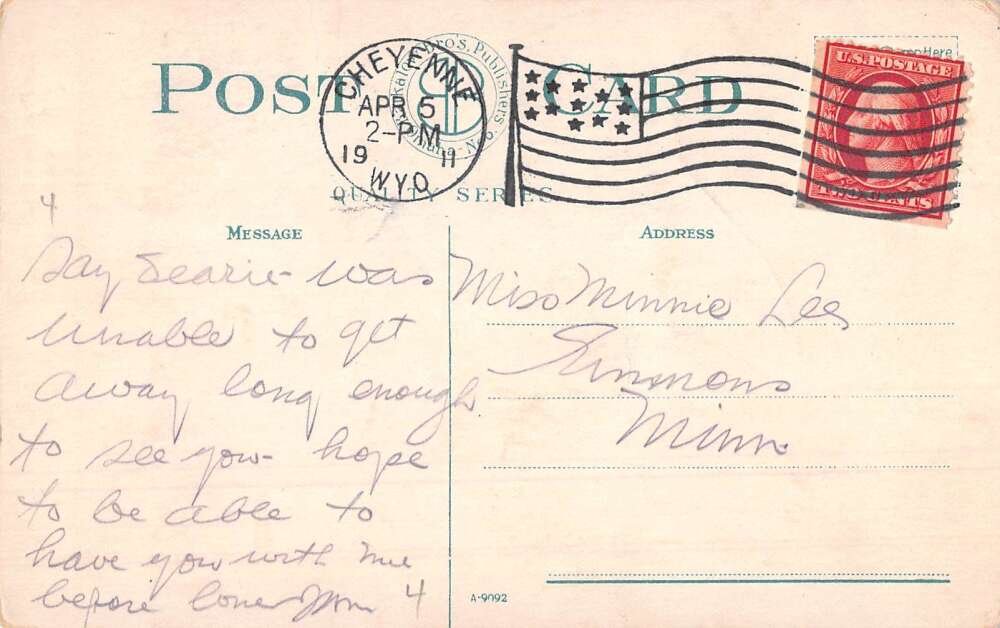 POST CARD
Bros. Publishers
CHEYENNE
APR 5
2-PM
19 11
WYO.
QUALITY SERIES
Here
U.S. POSTAGE
TWO CENTS
4
MESSAGE
ADDRESS
Say Dearie - was
unable to get
away long enough
to see you - hope
to be able to
have you with me
before
4
Miss Minnie Lee
Simmons
Minn.
A-9092